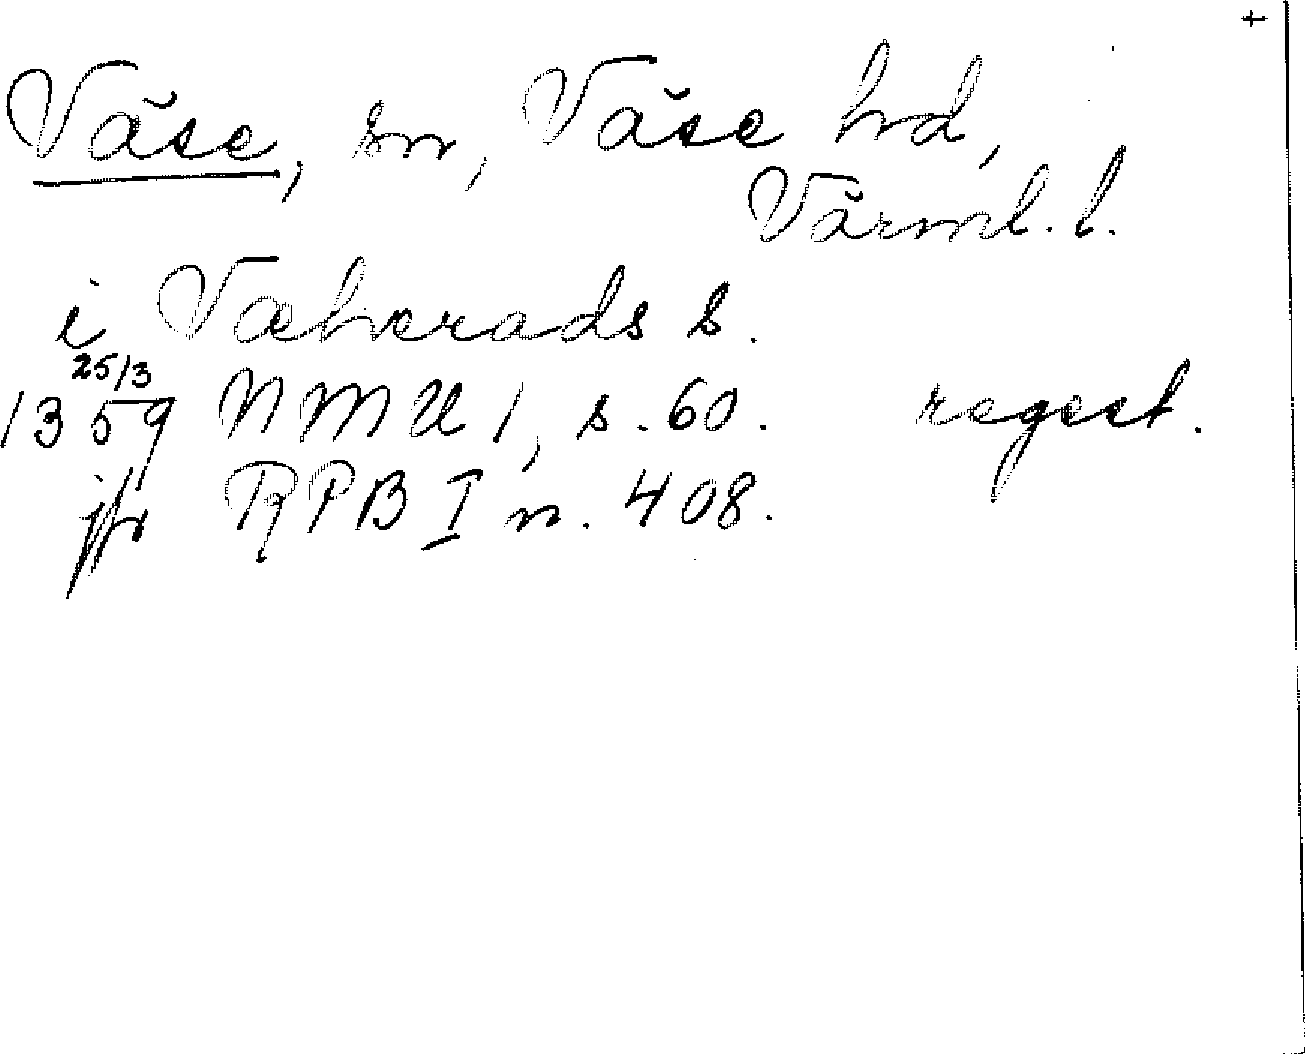 Väse, sn, Väse hd,
Värml. l.
i Væhærads s.
25/3
1359 NMU 1, s. 60. regest.
jfr RPB I n. 408.